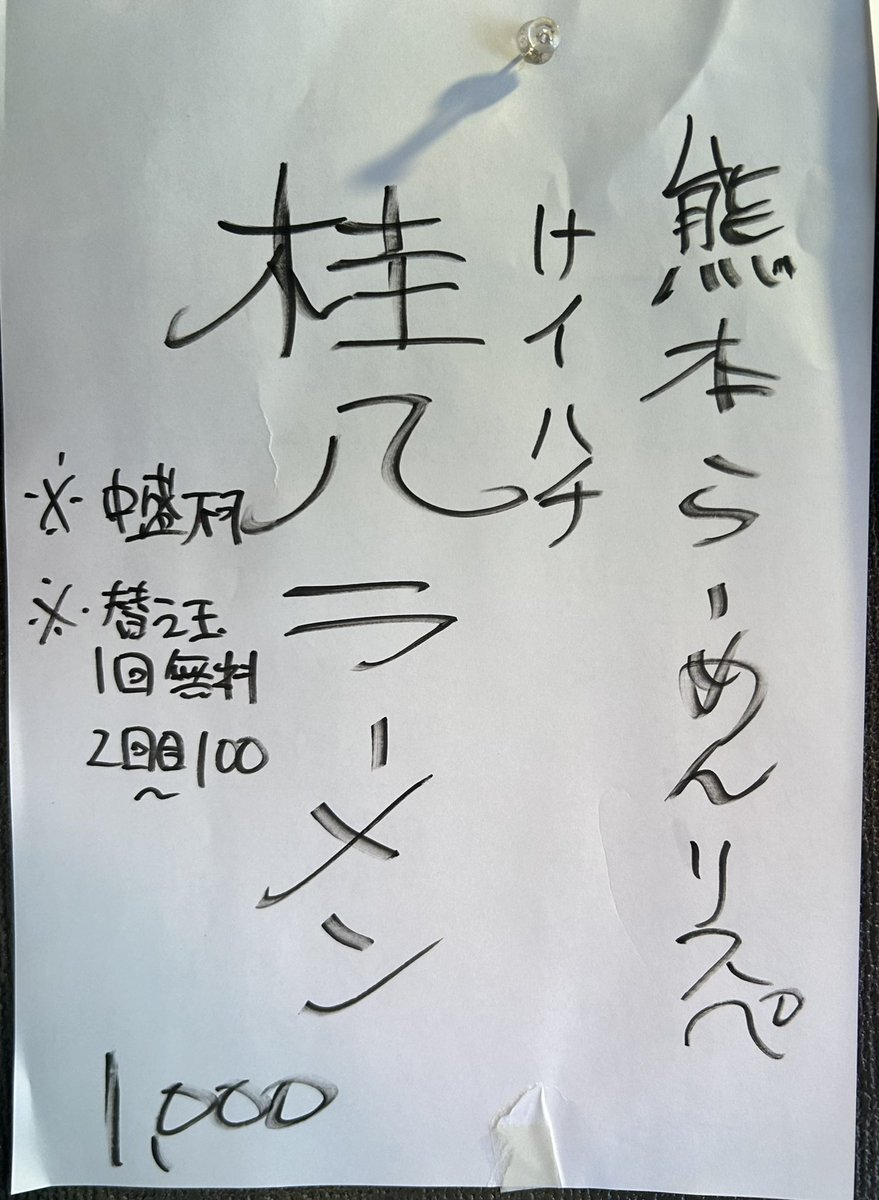 熊本らーめんリスペ
ケイハチ
桂八ラーメン
※中盛不可
※替え玉
1回無料
2回目100
〜
1,000